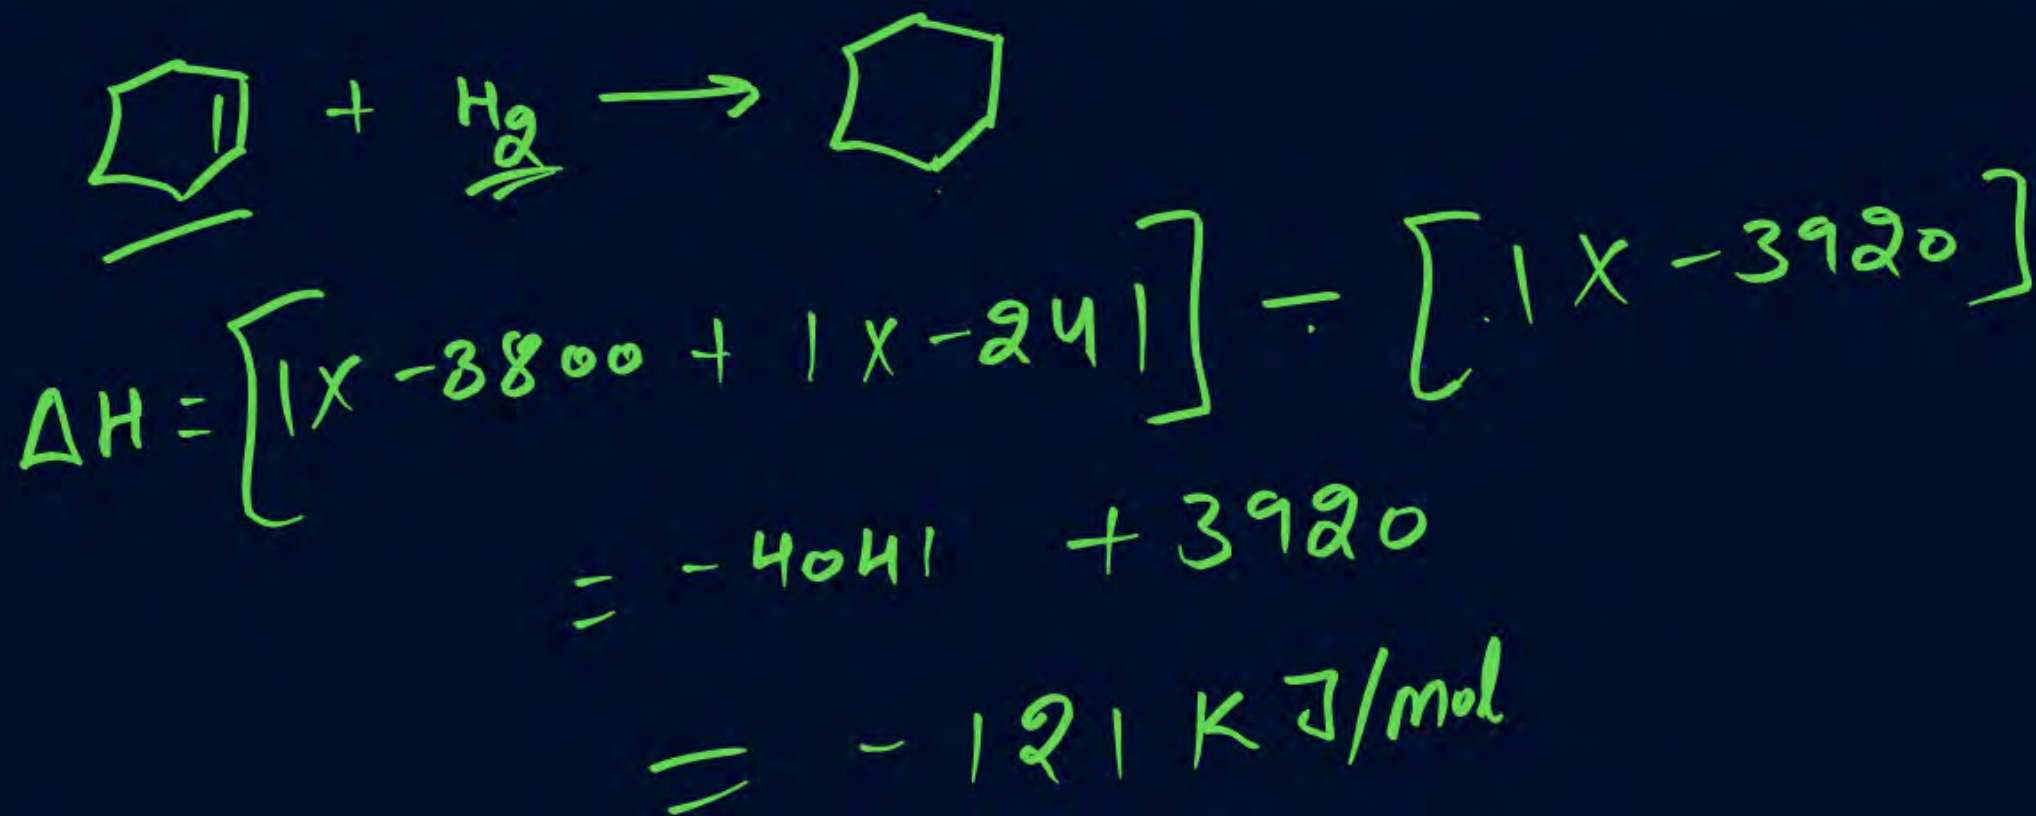 + H₂ ⟶
ΔH = [1X -3800 + 1 X -241] - [1 X -3920]
= -4041 + 3920
= -121 KJ/mol